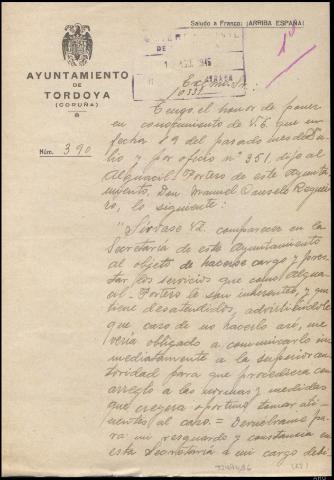 Saludo a Franco: ¡ARRIBA ESPAÑA!
AYUNTAMIENTO
DE
TORDOYA
(CORUÑA)
Núm. 390
Excmo. Sr.
Tengo el honor de poner
en conocimiento de V.E. que en
fecha 19 del pasado mes de
y por oficio nº 351, dije al
Alguacil Portero de este Ayunta
miento, Don Manuel
ro, lo siguiente:
"Sírvase Vd. comparecer en la
Secretaría de este Ayuntamiento
al objeto de hacerse cargo y pres-
tar los servicios que como Algua-
cil Portero le son inherentes, y que
tiene desatendidos, advirtiéndole
que caso de no hacerlo así, me
vería obligado a comunicarlo in
mediatamente a la superior au-
toridad para que procediera con
arreglo a las normas y medidas
que creyera oportuno tomar ati-
nentes al caso. = Devuélvame pa
ra mi resguardo y constancia en
esta Secretaría a mi cargo debi-